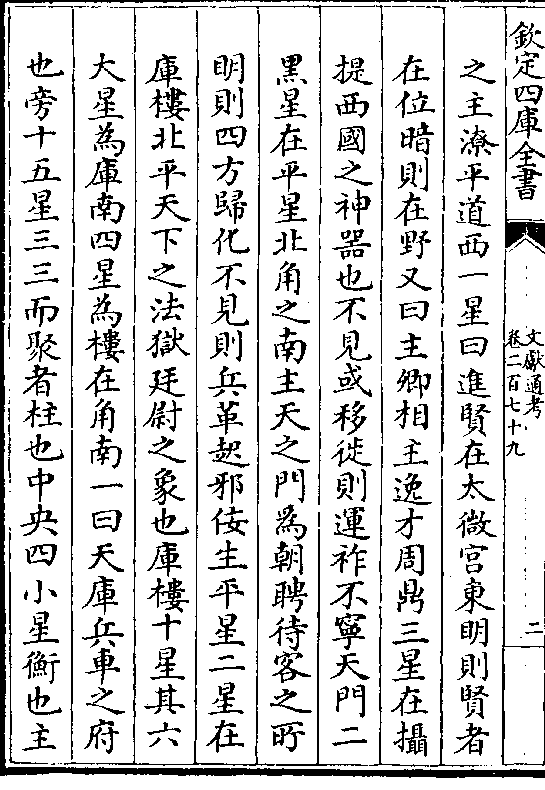 欽定四庫全書
文獻通考
卷二百七十九
二
之主潦平道西一星曰進賢在太微宫東明則賢者
在位暗則在野又曰主卿相主逸才周鼎三星在攝
提西國之神器也不見或移徙則運祚不寧天門二
黒星在平星北角之南主天之門為朝聘待客之所
明則四方歸化不見則兵革起邪佞生平星二星在
庫樓北平天下之法獄廷尉之象也庫樓十星其六
大星為庫南四星為樓在角南一曰天庫兵車之府
也旁十五星三三而聚者柱也中央四小星衡也主